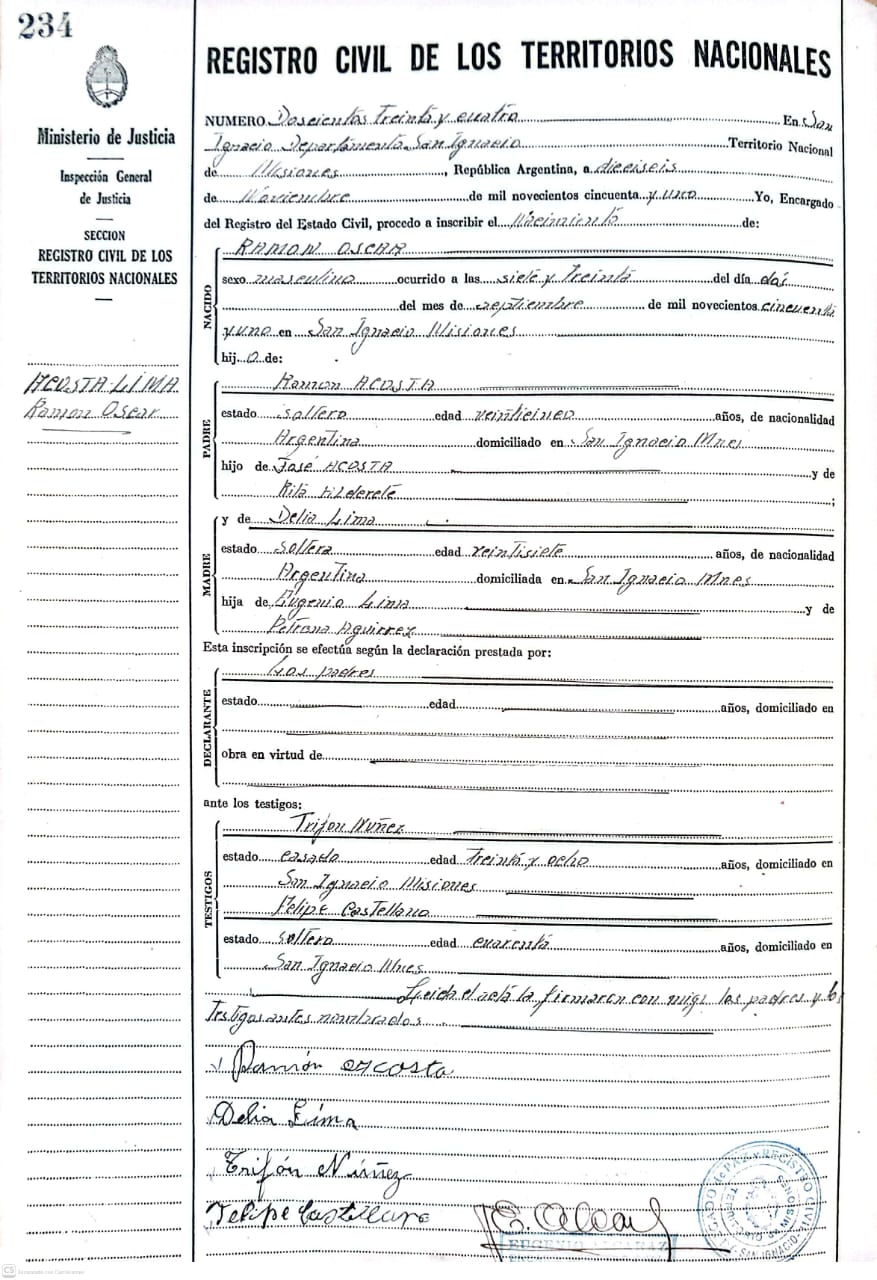 234
Ministerio de Justicia
Inspección General
de Justicia
SECCION
REGISTRO CIVIL DE LOS
TERRITORIOS NACIONALES
ACOSTA-LIMA
Ramon Oscar
REGISTRO CIVIL DE LOS TERRITORIOS NACIONALES
NUMERO Doscientos treinta y cuatro En San
Ignacio Departamento San Ignacio Territorio Nacional
de Misiones, República Argentina, a dieciseis
de Noviembre de mil novecientos cincuenta y uno Yo, Encargado
del Registro del Estado Civil, procedo a inscribir el Nacimiento de:
NACIDO
RAMON OSCAR
sexo masculino ocurrido a las siete y treinta del día dos
del mes de septiembre de mil novecientos cincuenta
y uno en San Ignacio Misiones
hijo de:
PADRE
Ramon ACOSTA
estado soltero edad veinticinco años, de nacionalidad
Argentina domiciliado en San Ignacio Mnes
hijo de José ACOSTA y de
Rita Alderete ;
MADRE
y de Delia Lima
estado soltera edad veintisiete años, de nacionalidad
Argentina domiciliada en San Ignacio Mnes
hija de Eugenio Lima y de
Petrona Aguirrez
Esta inscripción se efectúa según la declaración prestada por:
DECLARANTE
Los padres
estado edad años, domiciliado en
obra en virtud de
ante los testigos:
TESTIGOS
Trifon Nuñez
estado casado edad treinta y ocho años, domiciliado en
San Ignacio Misiones
Felipe Castellano
estado soltero edad cuarenta años, domiciliado en
San Ignacio Mnes
Leida el acta la firmaron con migo los padres y los
testigos antes nombrados
Ramón Acosta
Delia Lima
Trifón Núñez
Felipe Castellano
EUGENIO ALCARAZ
JUZGADO de PAZ y REGISTRO CIVIL
TERRITORIO DE MISIONES
SAN IGNACIO
CS Escaneado con CamScanner